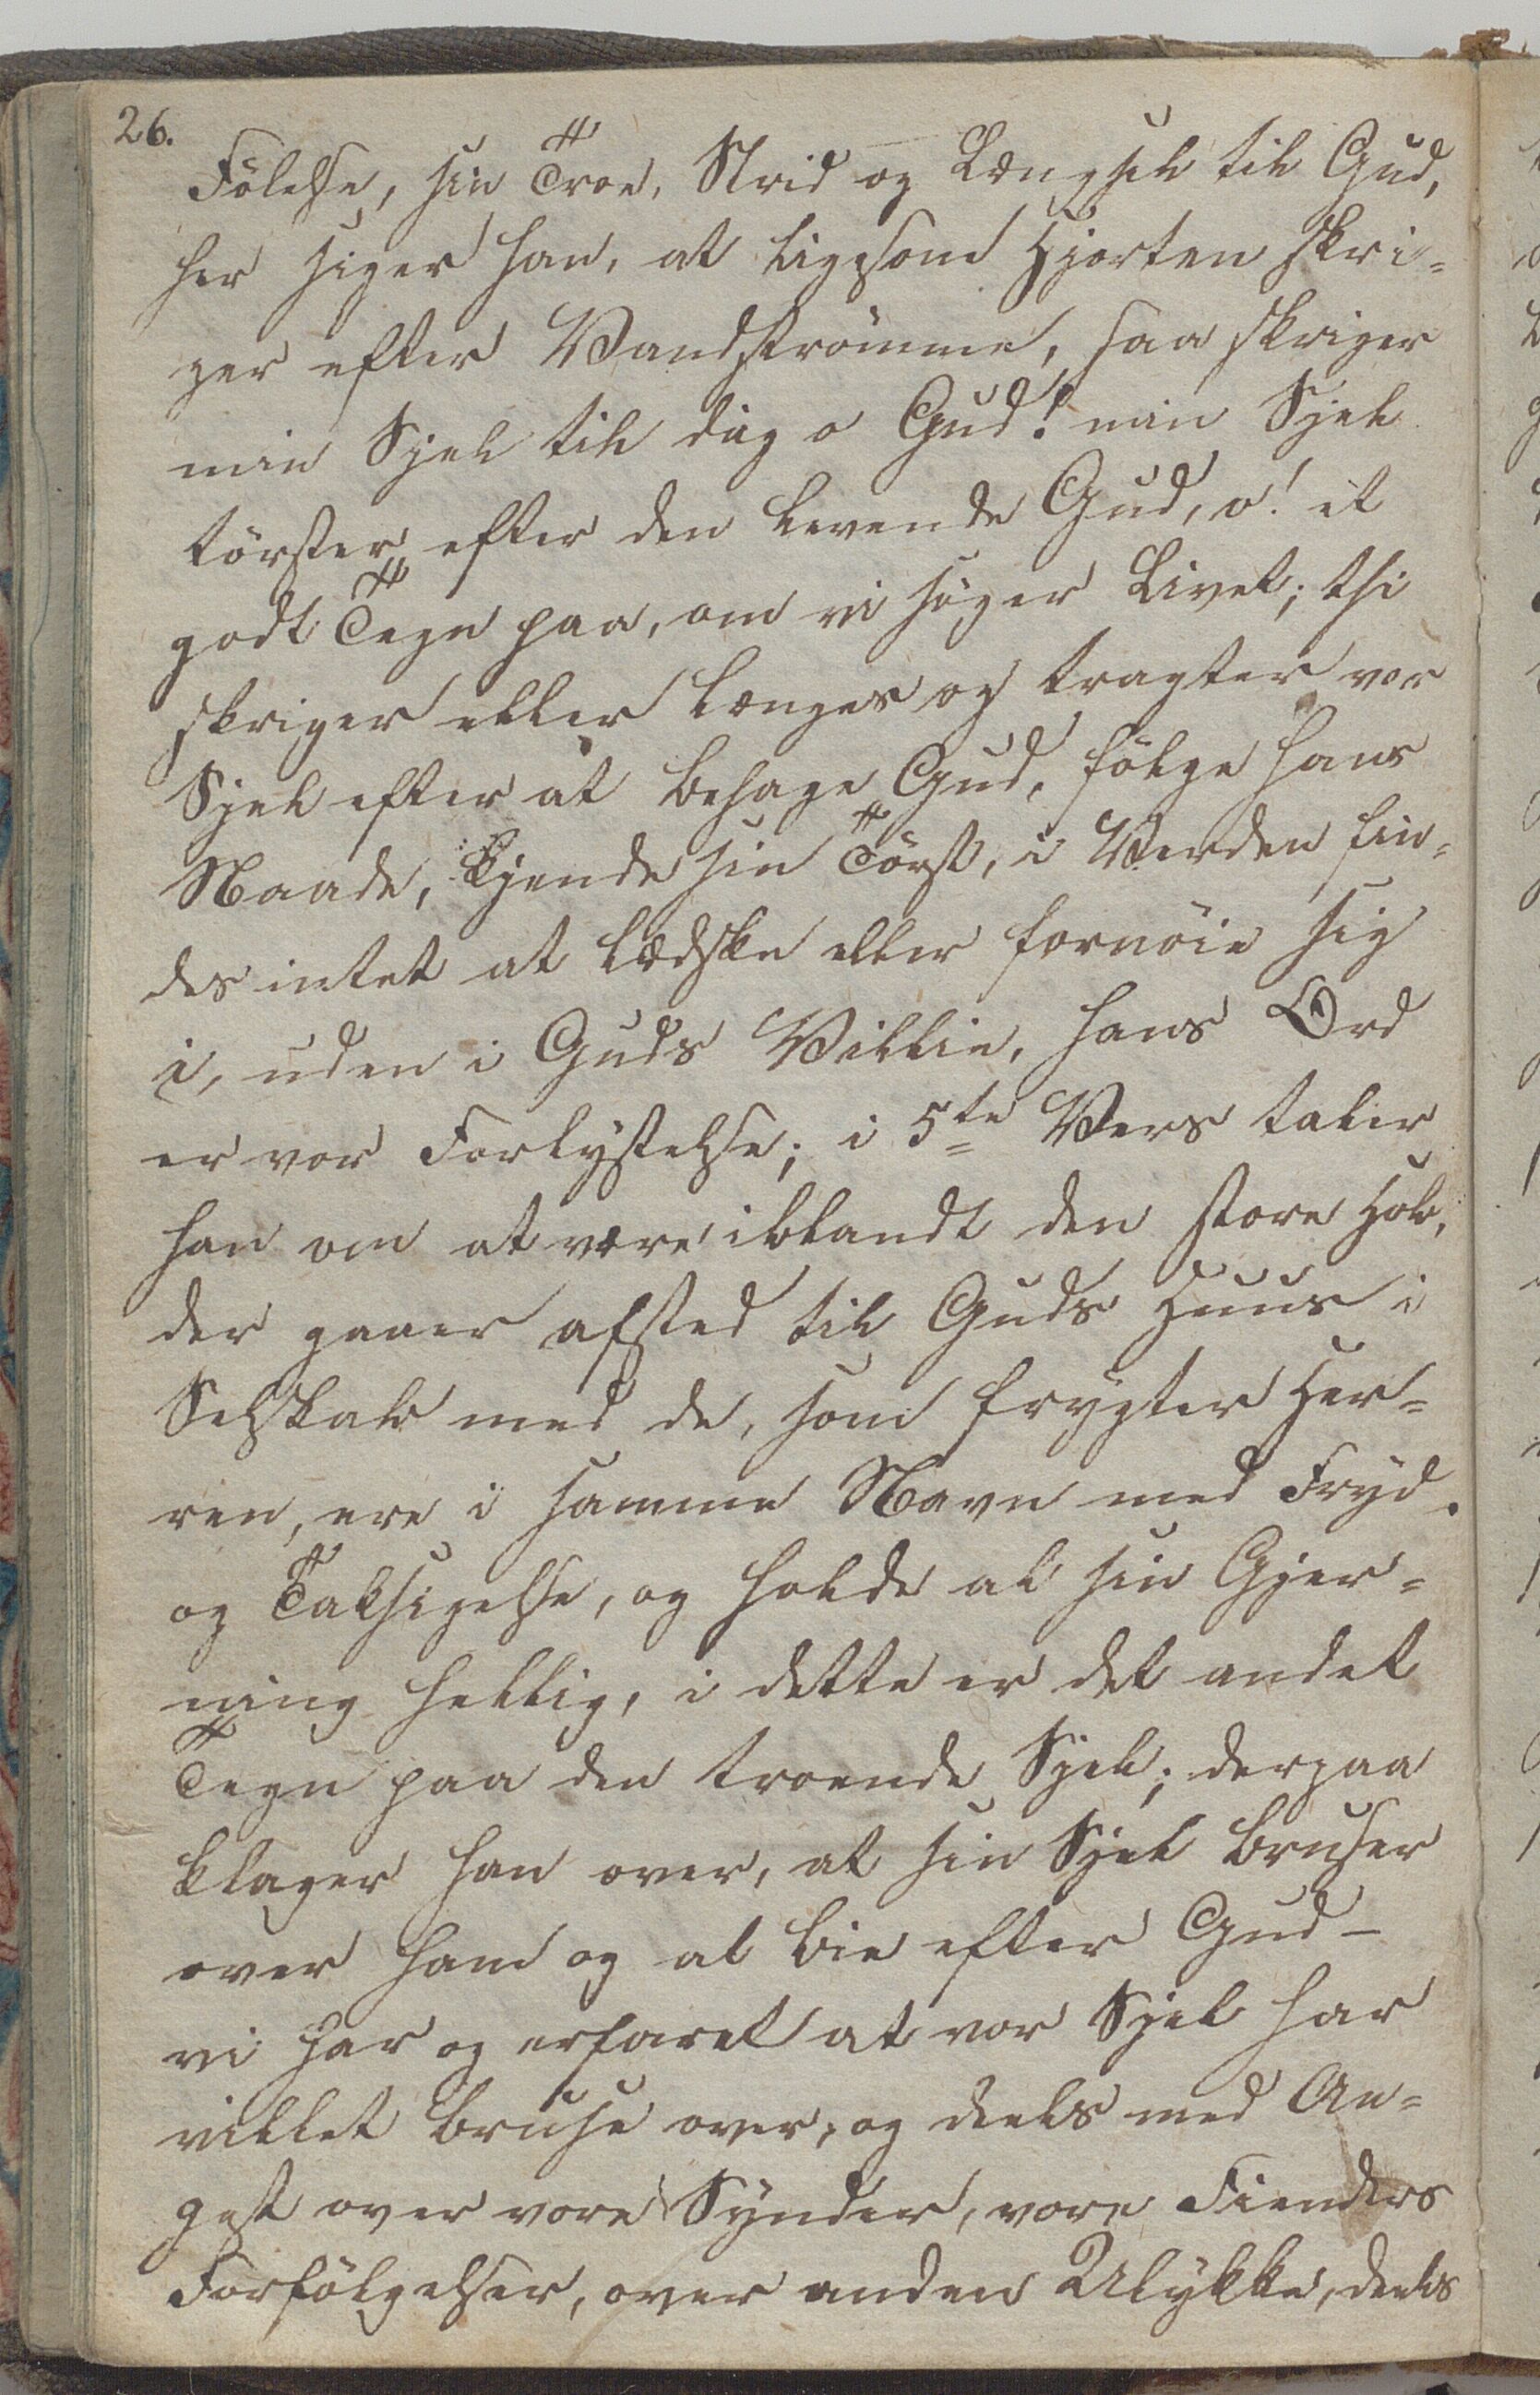 26.
Fölelse, sin Troe, Strid og Længsel til Gud,
her siger han, at ligesom Hjorten skri=
ger efter Vandströmme, saa skriger
min Sjel til dig o Gud! min Sjel
törster efter den levende Gud, o! et
godt Tegn paa, om vi söger Livet; thi
skriger eller længes og tragter vor
Sjel efter at behage Gud, fölge hans
Naade, kjende sin Törst, i Verden fin=
des intet at lædske eller fornöie sig
i, uden i Guds Villie, hans Ord
er vor Forlystelse; i 5te Vers taler
han om at være iblandt den store Hob,
der gaaer afsted til Guds Huus i
Selskab med de, som frygter Her=
ren, ere i samme Navn med Fryd
og Taksigelse, og holde al sin Gjer=
ning hellig, i dette er det andet
Tegn paa den troende Sjel; derpaa
klager han over, at sin Sjel bruser
over ham og at bie efter Gud –
vi har og erfaret at vor Sjel har
villet bruse over, og deels med An=
gest over vore Synder, vore Fienders
Forfölgelser, over anden Ulykke, deels